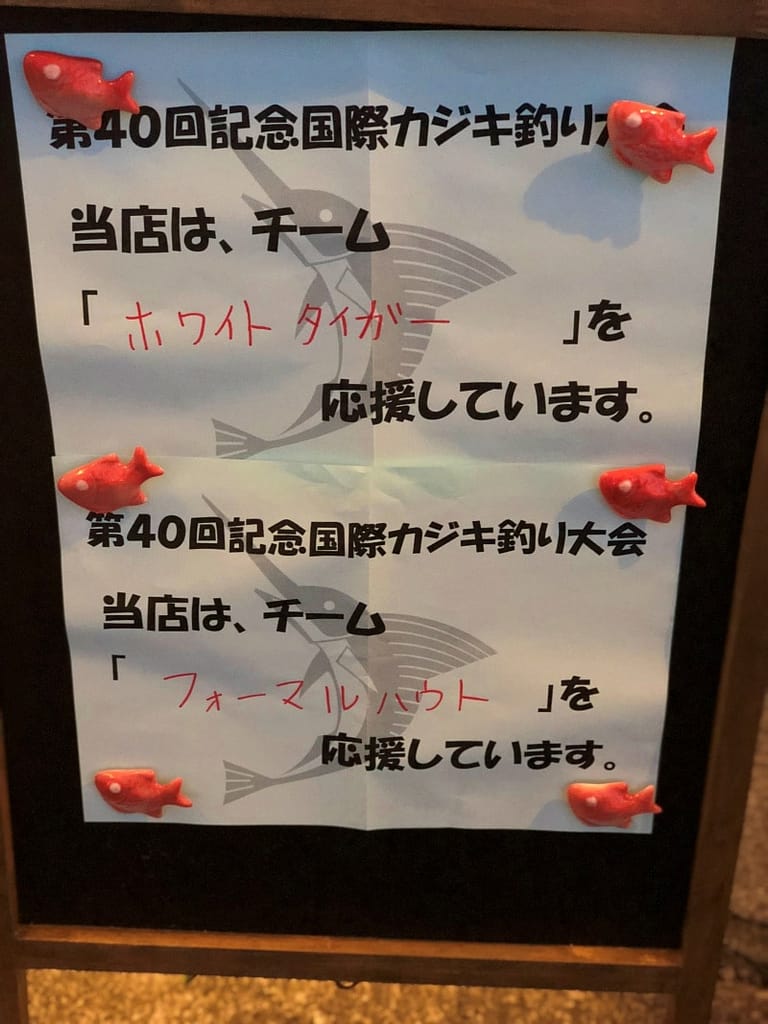 第40回記念国際カジキ釣り大会
当店は、チーム
「ホワイトタイガー」を
応援しています。
第40回記念国際カジキ釣り大会
当店は、チーム
「フォーマルハウト」を
応援しています。